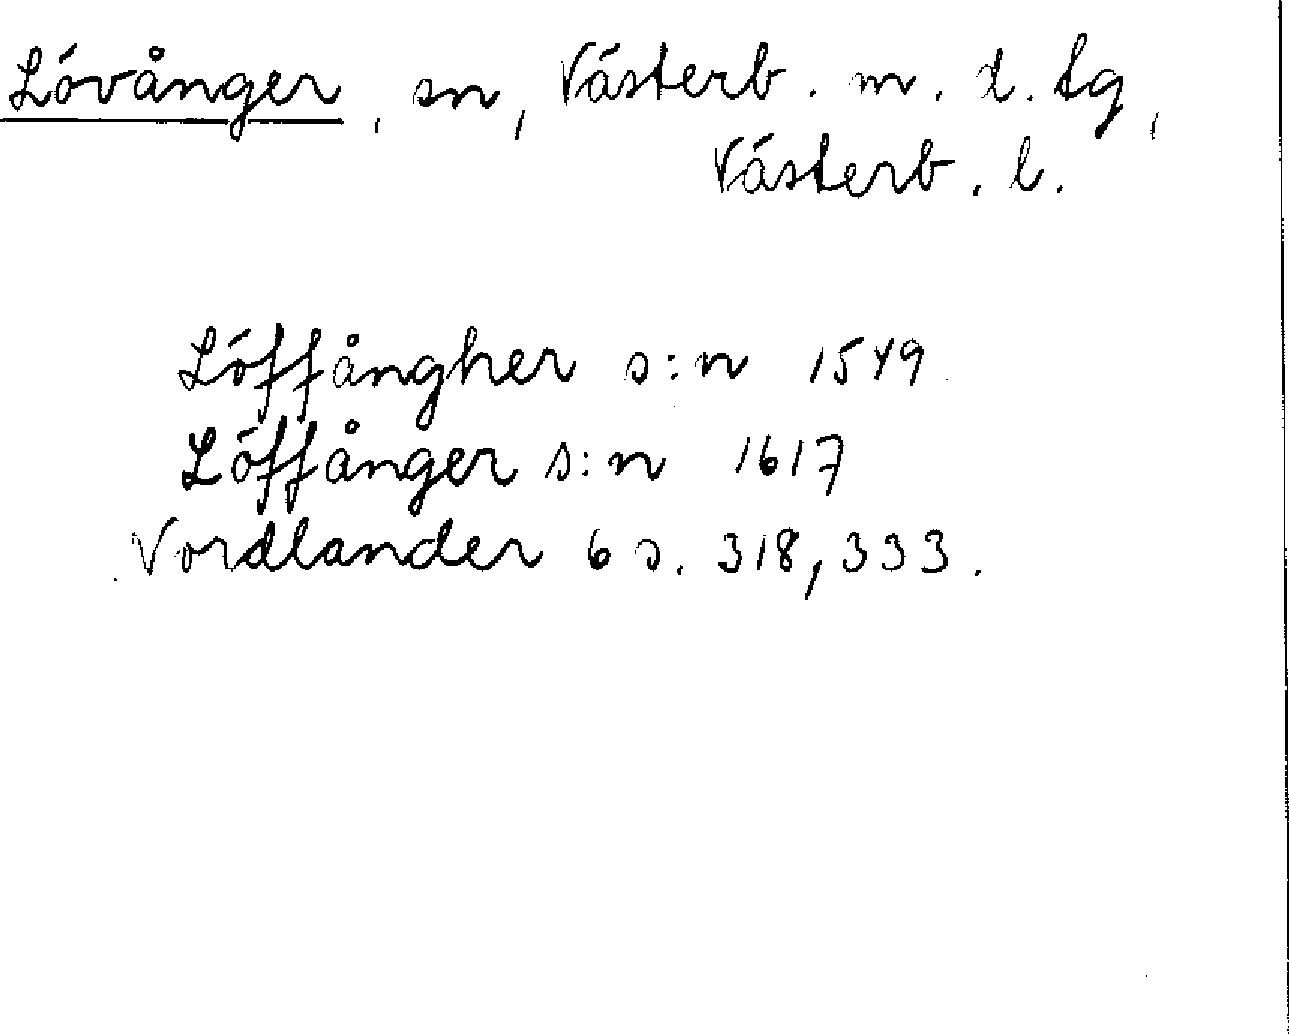 Lövånger, sn, Västerb. m. d. tg,
Västerb. l.
Löffångher s:n 1549
Löffånger s:n 1617
Nordlander 6 s. 318, 333.